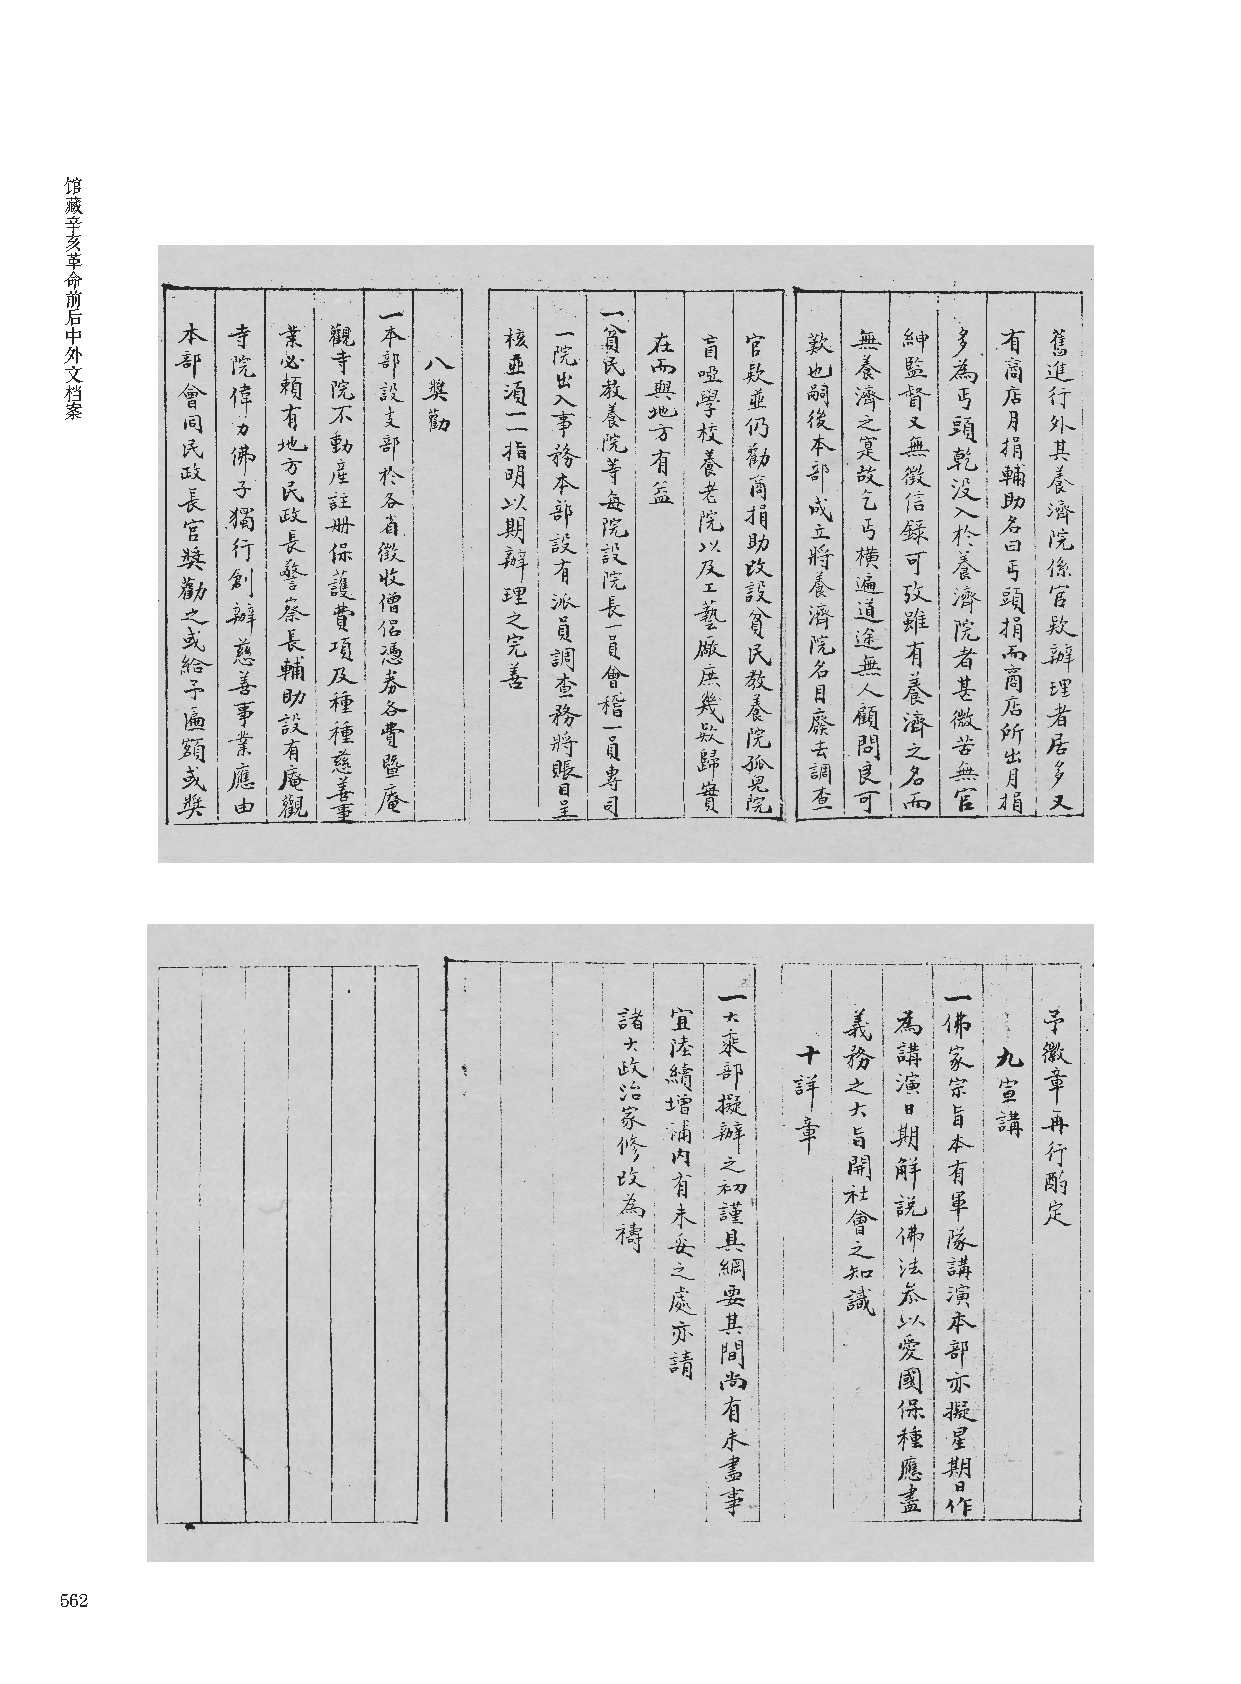 馆藏辛亥革命前后中外文档案
舊進行外其養濟院係官欵辦理者居多又
有商店月捐輔助名曰丐頭捐而商店所出月捐
多為丐頭乾没入於養濟院者甚微苦無官
紳監督又無徵信錄可攷雖有養濟之名而
無養濟之寔故乞丐橫遍道途無人顧問良可
歎也嗣後本部成立將養濟院名目廢去調查
官欵並仍勸商捐助改設貧民教養院孤兒院
盲啞學校養老院以及工藝廠庶幾欵歸實
在而與地方有益
一貧民教養院等每院設院長一員會稽一員專司
一院出入事務本部設有派員調查務將賬目呈
核並須一一指明以期辦理之完善
八獎勸
一本部設支部於各省徵收僧侶憑券各費暨庵
觀寺院不動產註册保護費項及種種慈善事
業必賴有地方民政長警察長輔助設有庵觀
寺院偉力佛子獨行創辦慈善事業應由
本部會同民政長官獎勸之或給予匾額或獎
予徽章再行酌定
九宣講
一佛家宗旨本有軍隊講演本部亦擬星期日作
為講演日期解説佛法叅以愛國保種應盡
義務之大旨開社會之知識
十詳章
一大乘部擬辦之初謹具綱要其間尚有未盡事
宜陸續增補内有未妥之處亦請
諸大政治家修改為禱
562